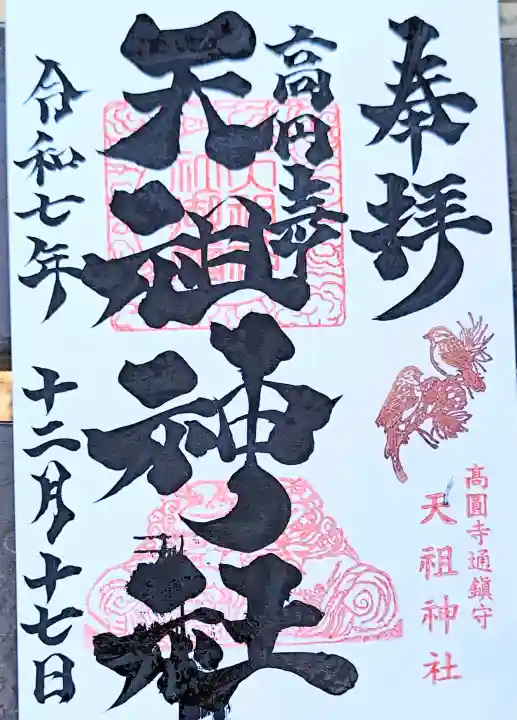 奉拝
高圓寺通鎮守
天祖神社
高円寺
天祖神社
令和七年
十二月十七日